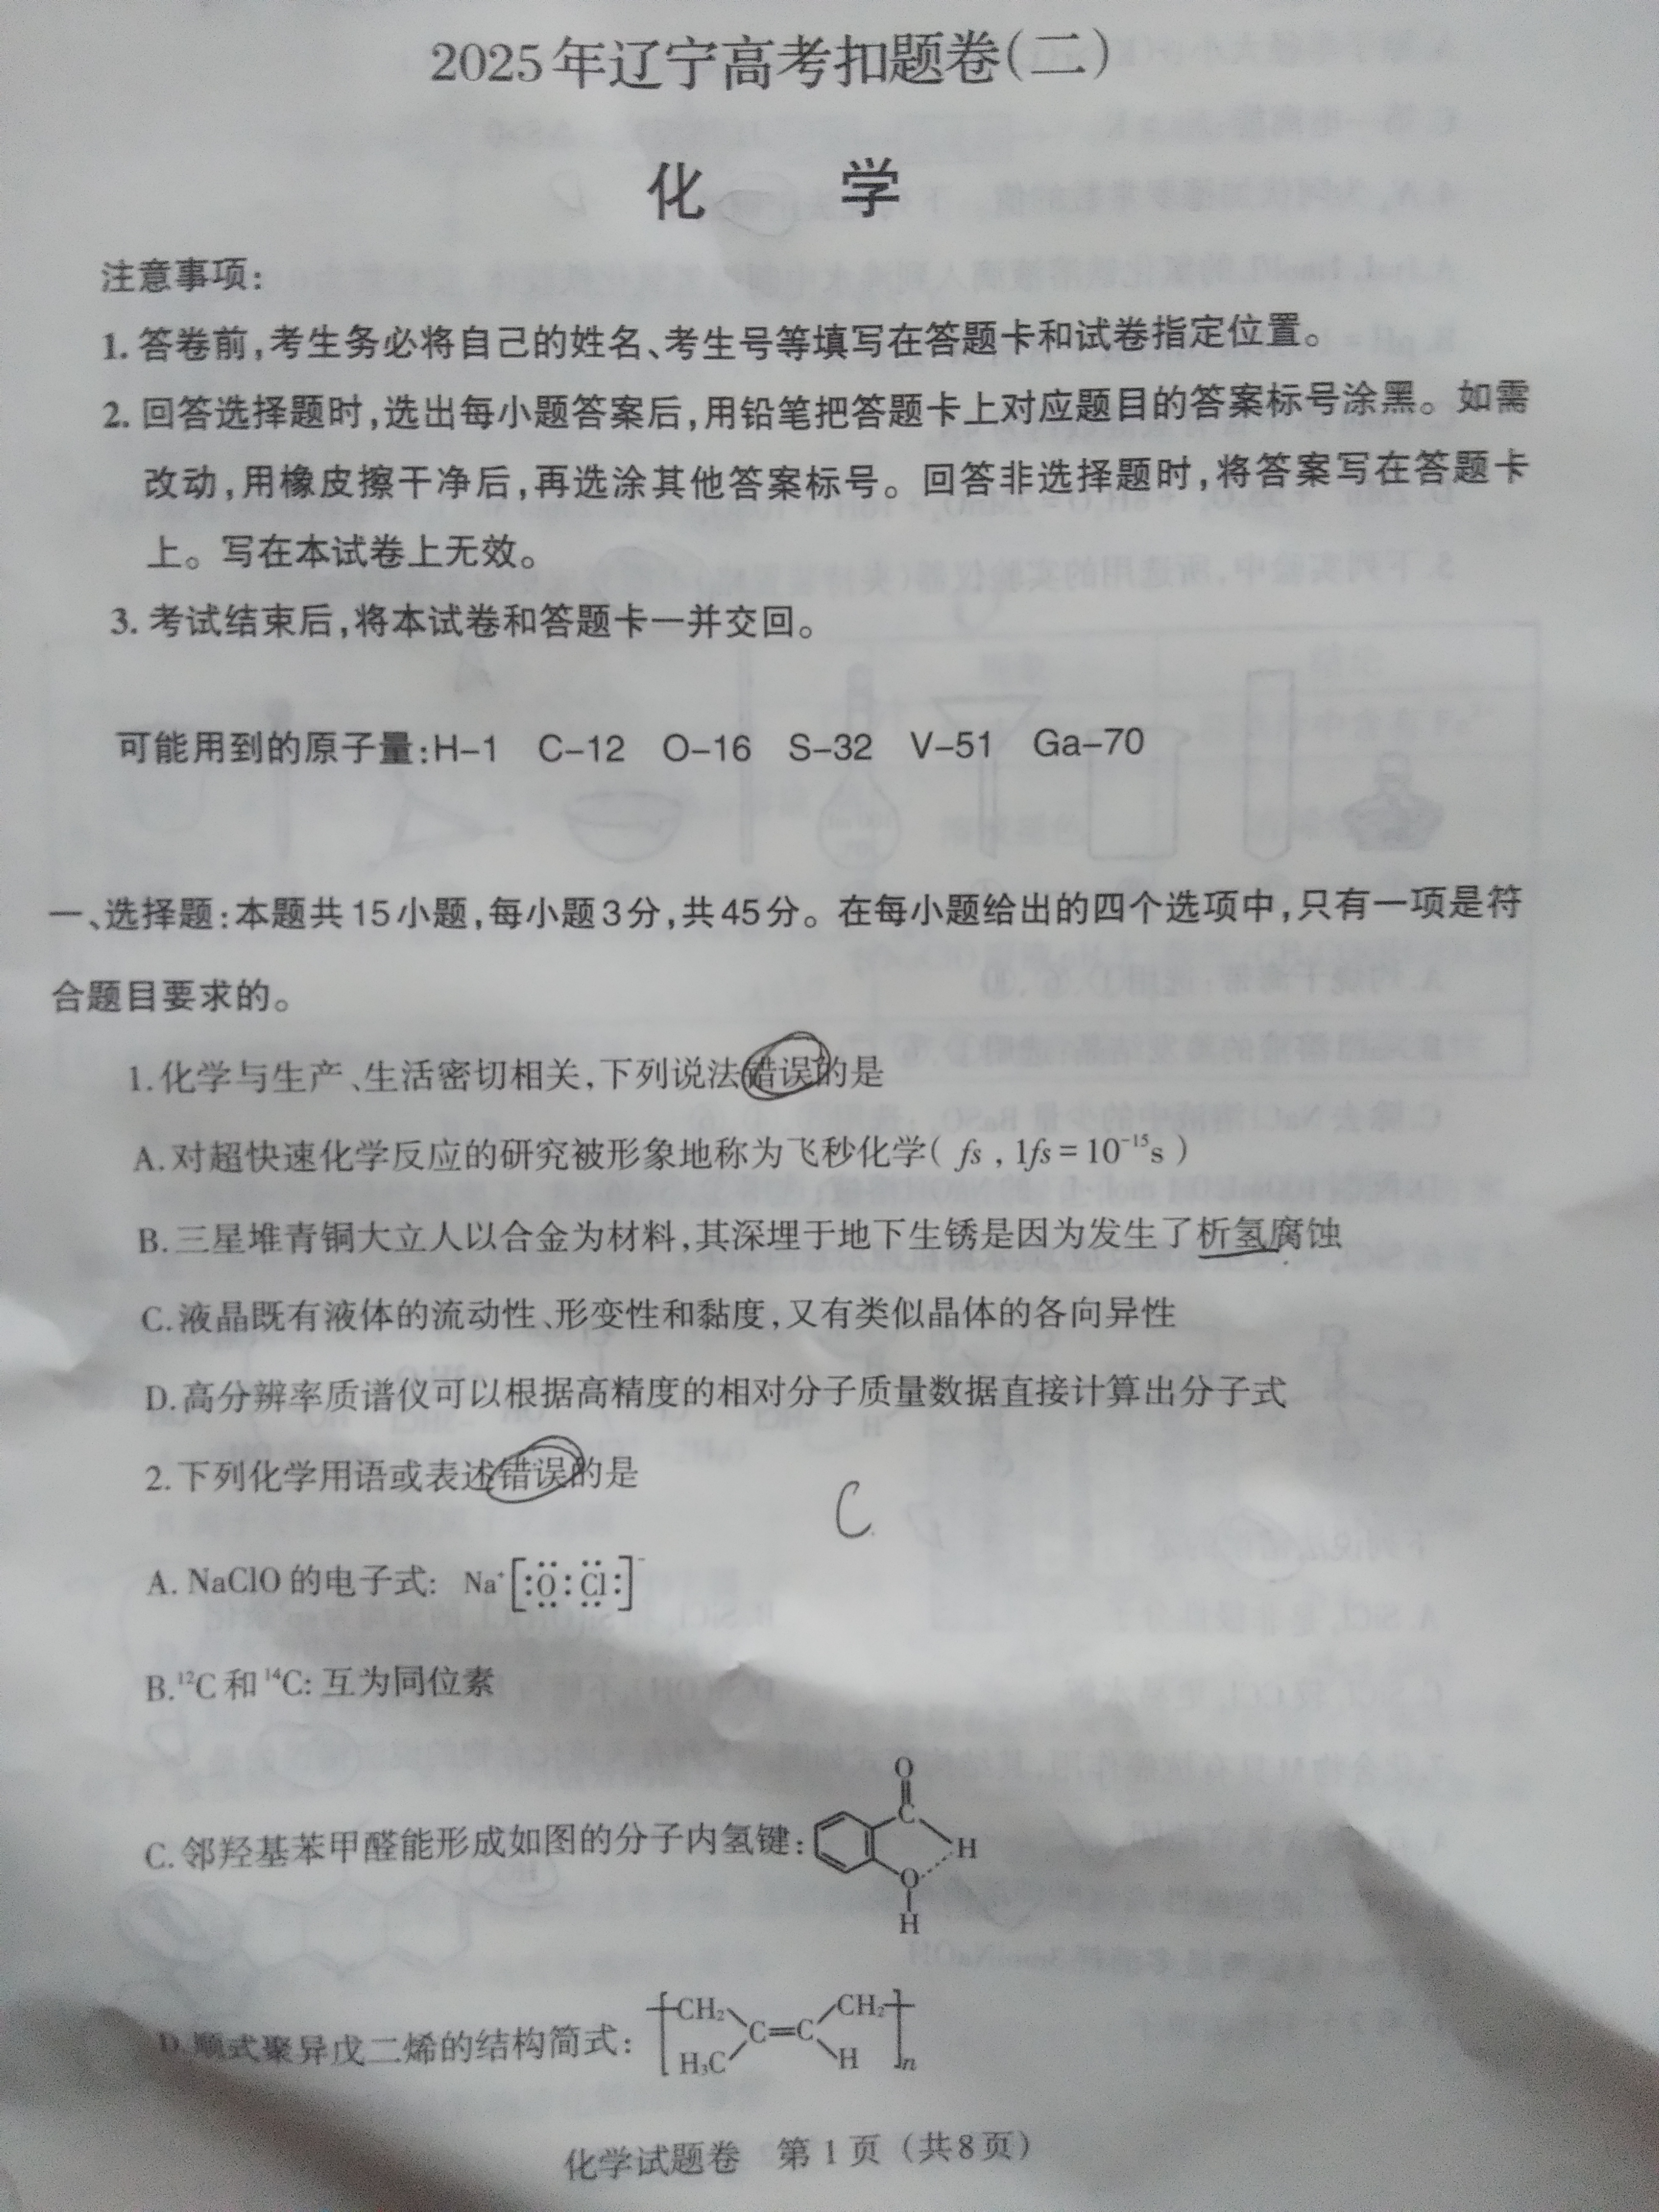 2025年辽宁高考扣题卷(二)
化 学
注意事项:
1. 答卷前,考生务必将自己的姓名、考生号等填写在答题卡和试卷指定位置。
2. 回答选择题时,选出每小题答案后,用铅笔把答题卡上对应题目的答案标号涂黑。如需
改动,用橡皮擦干净后,再选涂其他答案标号。回答非选择题时,将答案写在答题卡
上。写在本试卷上无效。
3. 考试结束后,将本试卷和答题卡一并交回。
可能用到的原子量:H-1 C-12 O-16 S-32 V-51 Ga-70
一、选择题:本题共15小题,每小题3分,共45分。在每小题给出的四个选项中,只有一项是符
合题目要求的。
1.化学与生产、生活密切相关,下列说法错误的是
A.对超快速化学反应的研究被形象地称为飞秒化学( fs , 1fs = 10⁻¹⁵s )
B.三星堆青铜大立人以合金为材料,其深埋于地下生锈是因为发生了析氢腐蚀
C.液晶既有液体的流动性、形变性和黏度,又有类似晶体的各向异性
D.高分辨率质谱仪可以根据高精度的相对分子质量数据直接计算出分子式
2.下列化学用语或表述错误的是
C
A. NaClO 的电子式: Na⁺[:O:Cl:]⁻
B.¹²C 和 ¹⁴C: 互为同位素
C.邻羟基苯甲醛能形成如图的分子内氢键:
O
C
H
O
H
D.顺式聚异戊二烯的结构简式:
CH₂ CH₂
C=C
H₃C H n
化学试题卷 第1页(共8页)